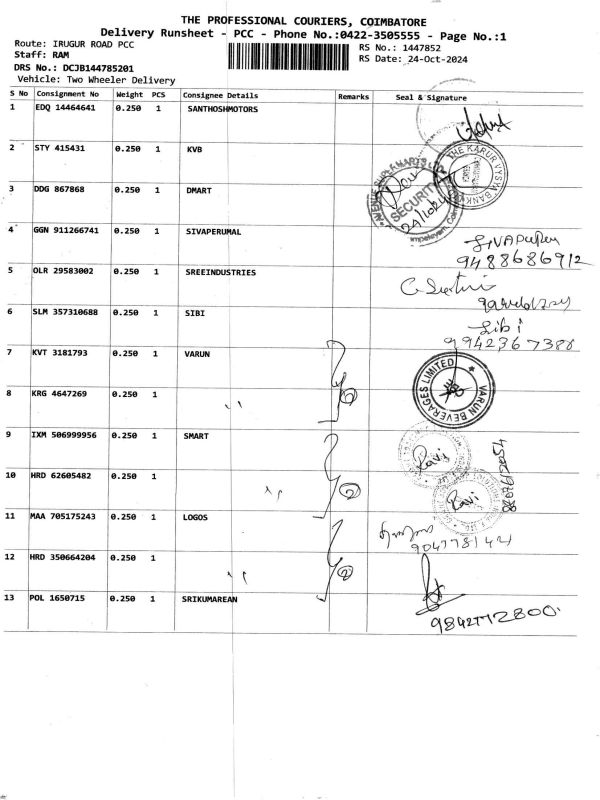 THE PROFESSIONAL COURIERS, COIMBATORE
Delivery Runsheet - PCC - Phone No.:0422-3505555 - Page No.:1
Route: IRUGUR ROAD PCC
RS No.: 1447852
Staff: RAM
RS Date: 24-Oct-2024
DRS No.: DCJB144785201
Vehicle: Two Wheeler Delivery
S No Consignment No Weight PCS Consignee Details Remarks Seal & Signature
1 EDQ 14464641 0.250 1 SANTHOSHMOTORS
2 STY 415431 0.250 1 KVB THE KARUR VYSYA BANK
3 DDG 867868 0.250 1 DMART SECURITY
4 GGN 911266741 0.250 1 SIVAPERUMAL
9488686912
5 OLR 29583002 0.250 1 SREEINDUSTRIES
6 SLM 357310688 0.250 1 SIBI Sibi
9942367388
7 KVT 3181793 0.250 1 VARUN VARUN BEVERAGES LIMITED
8 KRG 4647269 0.250 1 " 2
9 IXM 506999956 0.250 1 SMART Ravi
10 HRD 62605482 0.250 1 " 2 Ravi
11 MAA 705175243 0.250 1 LOGOS
12 HRD 350664204 0.250 1 " 2
13 POL 1650715 0.250 1 SRIKUMAREAN